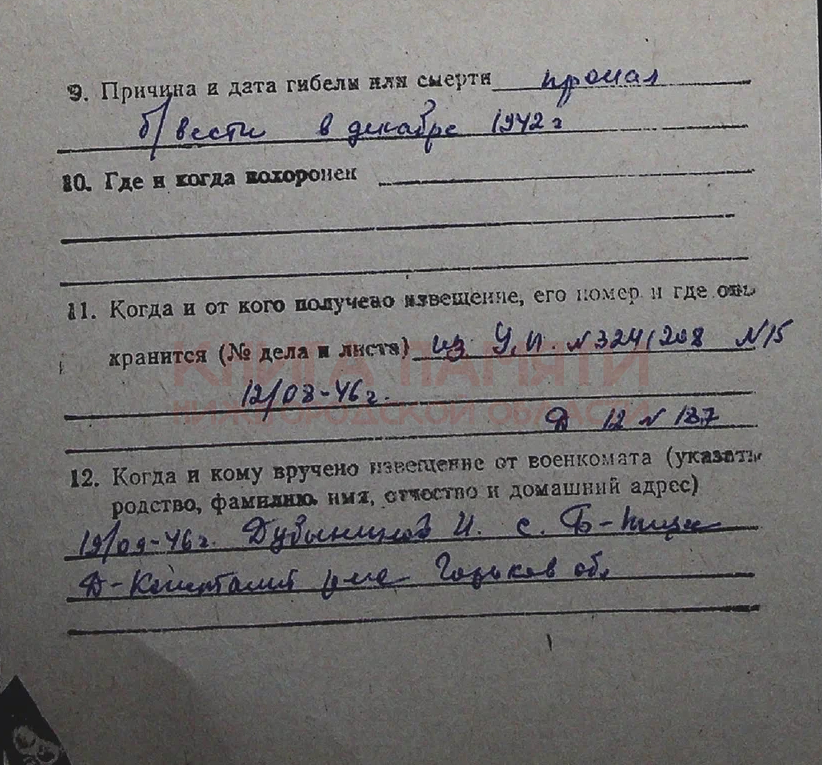 9. Причина и дата гибели или смерти пропал
б/вести в декабре 1942 г
10. Где и когда похоронен
11. Когда и от кого получено извещение, его номер и где оно
хранится (№ дела и листа) из У.П. №324/208 №15
КНИГА ПАМЯТИ
12/08-46 г.
НИЖЕГОРОДСКОЙ ОБЛАСТИ
Д 12 № 187
12. Когда и кому вручено извещение от военкомата (указать
родство, фамилию, имя, отчество и домашний адрес)
19/09-46 г. И. с. Б-
Д-Константин Горьков обл